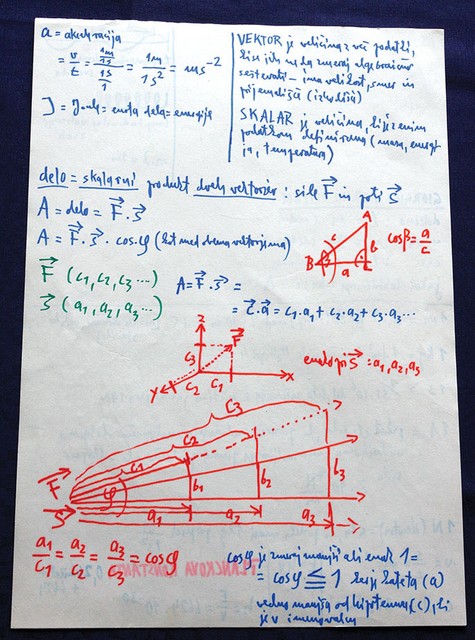 a = akceleracija
= v/t = 1m/1s / 1s/1 = 1m/1s² = ms⁻²
J = J·ul = enota dela = energija
VEKTOR je veličina z več podatki,
ki se jih ne da zmeraj algebraično
seštevati – ima velikost, smer in
prijemališče (izhodišče)
SKALAR je veličina, ki je z enim
podatkom definirana (masa, energi
ja, temperatura)
delo = skalarni produkt dveh vektorjev : sile F in poti S
A = delo = F · S
A = F · S · cos φ (kot med obema vektorjema)
A
B
c
b
a
cos β = a/c
F (c₁, c₂, c₃ ...)
S (a₁, a₂, a₃ ...)
A = F · S =
= c · a = c₁·a₁ + c₂·a₂ + c₃·a₃ ...
z
F
c₃
c₂ c₁
y x
enako pri S : a₁, a₂, a₃
c₃
c₂
c₁
F
φ
b₁ b₂ b₃
S
a₁ a₂ a₃
a₁/c₁ = a₂/c₂ = a₃/c₃ = cos φ
cos φ je zmeraj manjši ali enak 1 =
= cos φ ≦ 1 ker je kateta (a)
vedno manjša od hipotenuze (c), ki
je v imenovalcu
PLANCKOVA KONSTANTA